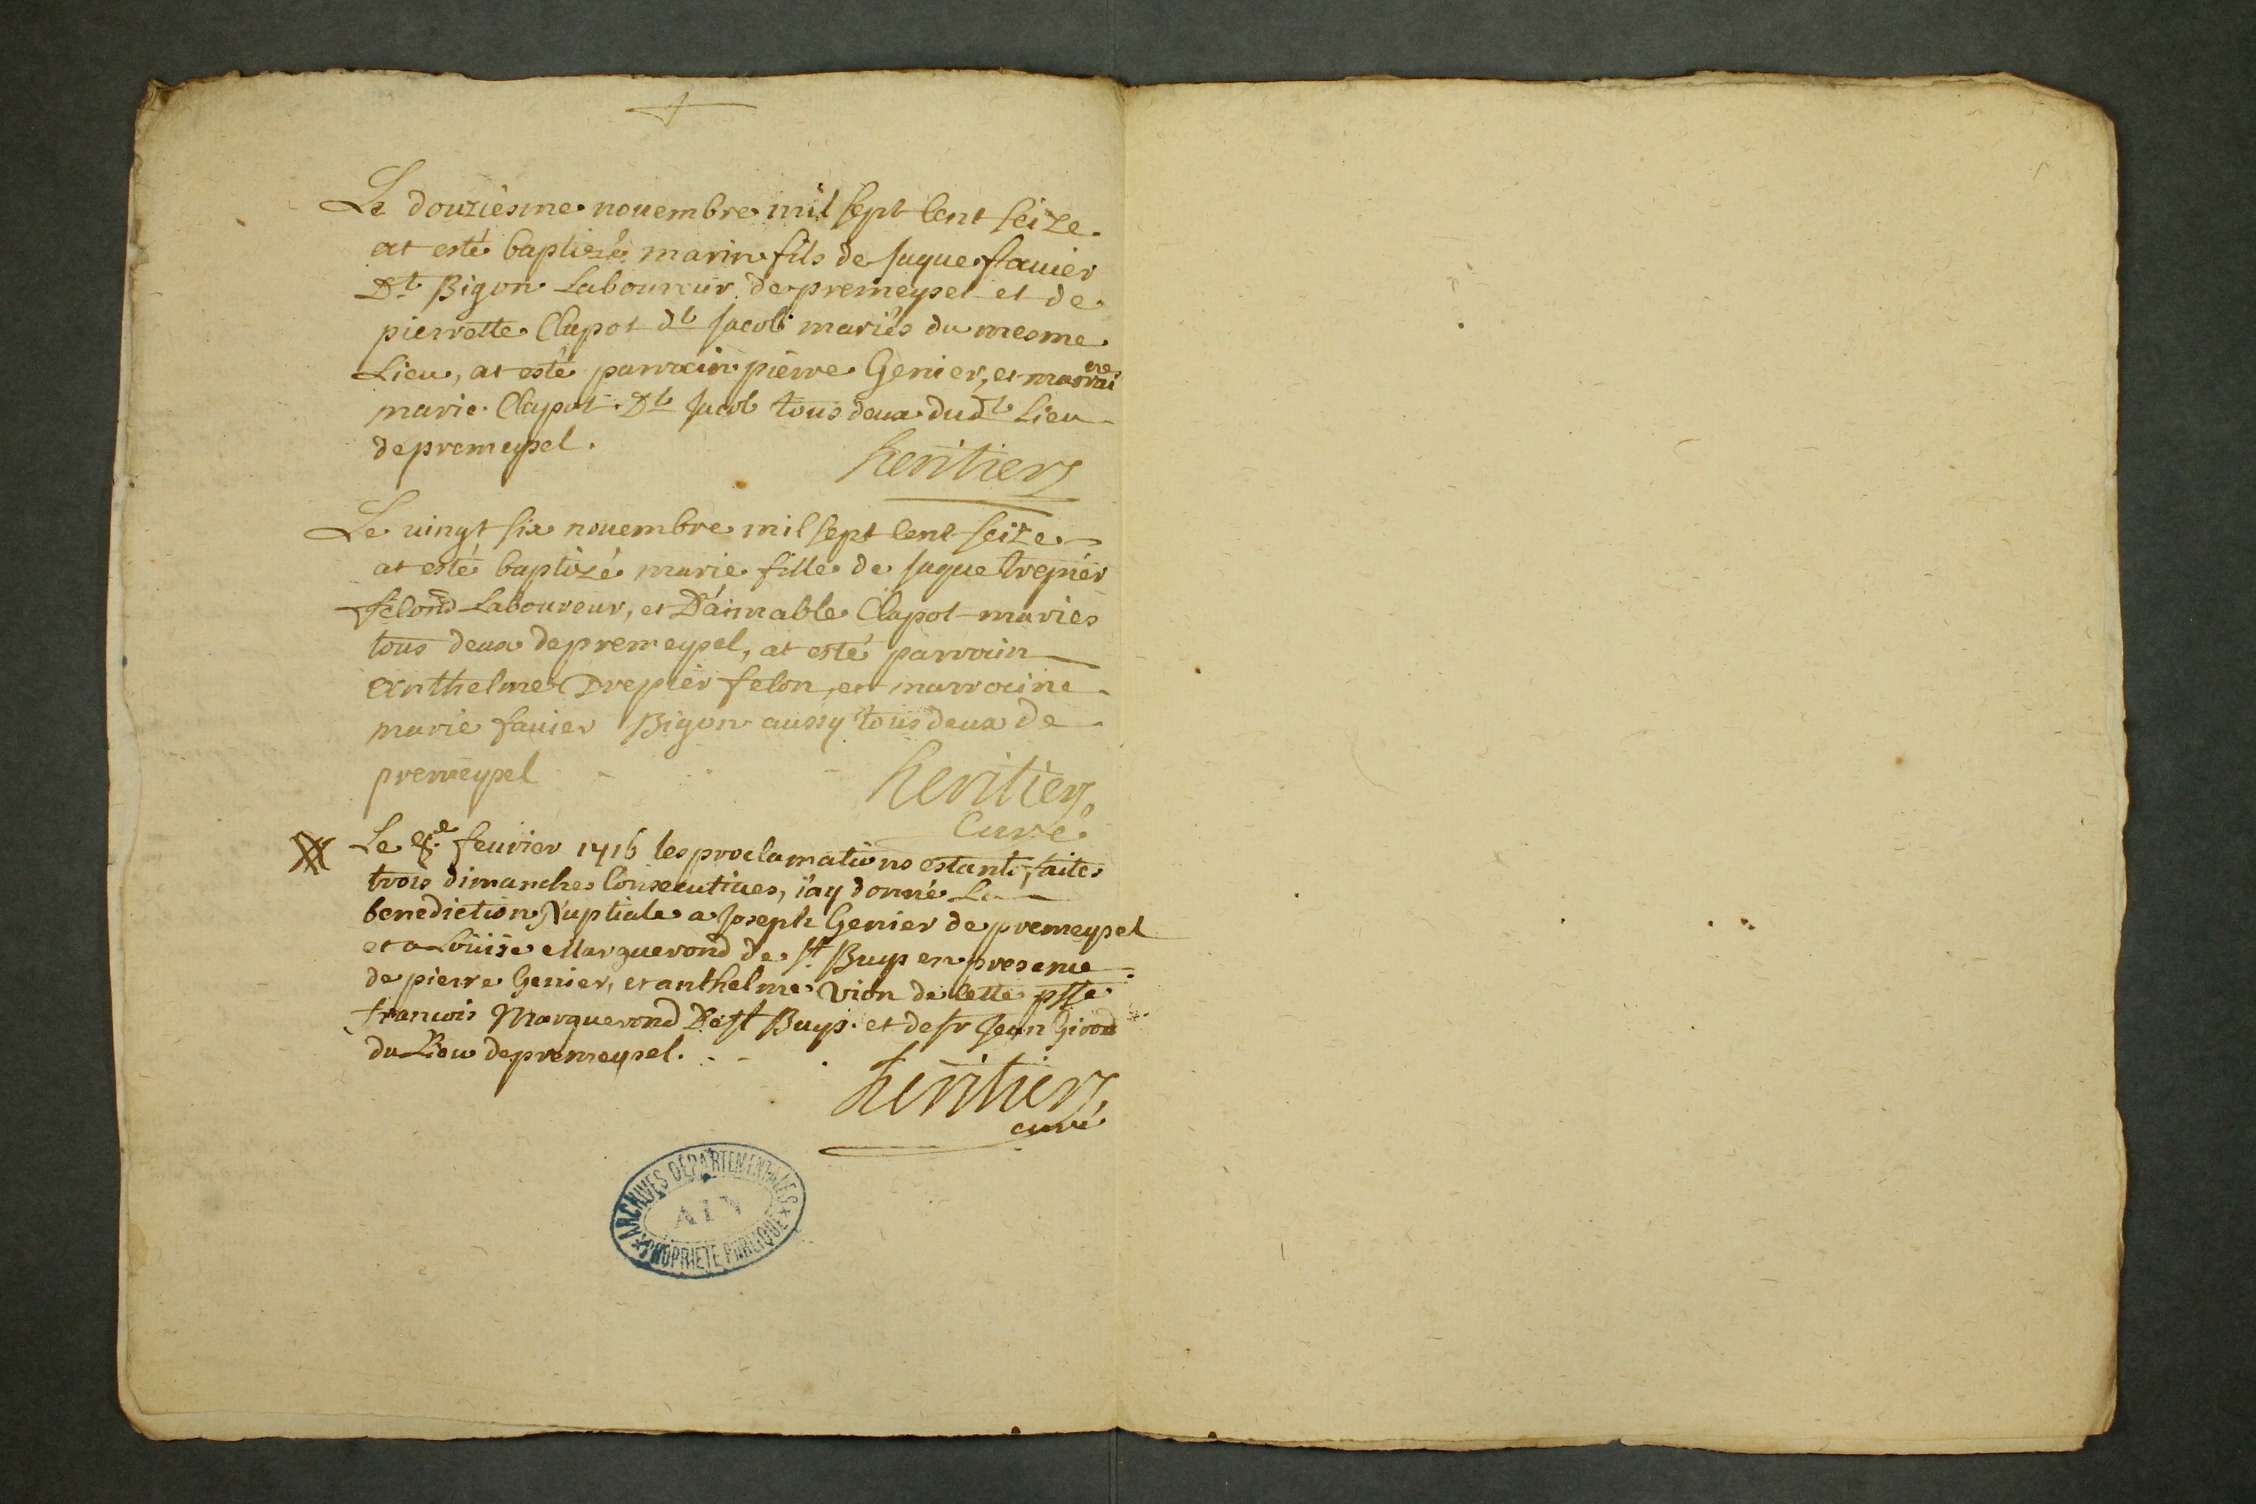 Le douziesme nouembre mil sept Cent seize
at esté baptizé marin fils de Jaque fauier
Dt Bigon Laboureur de premeysel et de
pierrette Clapot dt Jacob mariés du mesme
Lieu, at esté parrain pierre Genier, et marraine
marie Clapot Dt Jacob tous deux dudt Lieu
de premeysel.
heritier
Le uingt six nouembre mil sept Cent seize
at esté baptizé marie fille de Jaque trepier
felond Laboureur, et D'aimable Clapot mariés
tous deux de premeysel, at esté parrain
anthelme Drepier felon, et marraine
marie fauier Bigon aussy tous deux de
premeysel
heritier
Curé
Le feurier 1716 les proclamations estants faites
trois dimanches Consecutiues, i'ay donné La
benediction Nuptiale a Joseph Genier de premeysel
et a Loüise Marguerond de St Buys en presence
de pierre Genier, et anthelme Vion de Cette psse
francois Marguerond De St Buys et de sr Jean Girod
du Lieu de premeysel.
heritier
curé
ARCHIVES DÉPARTEMENTALES
AIN
PROPRIETE PUBLIQUE